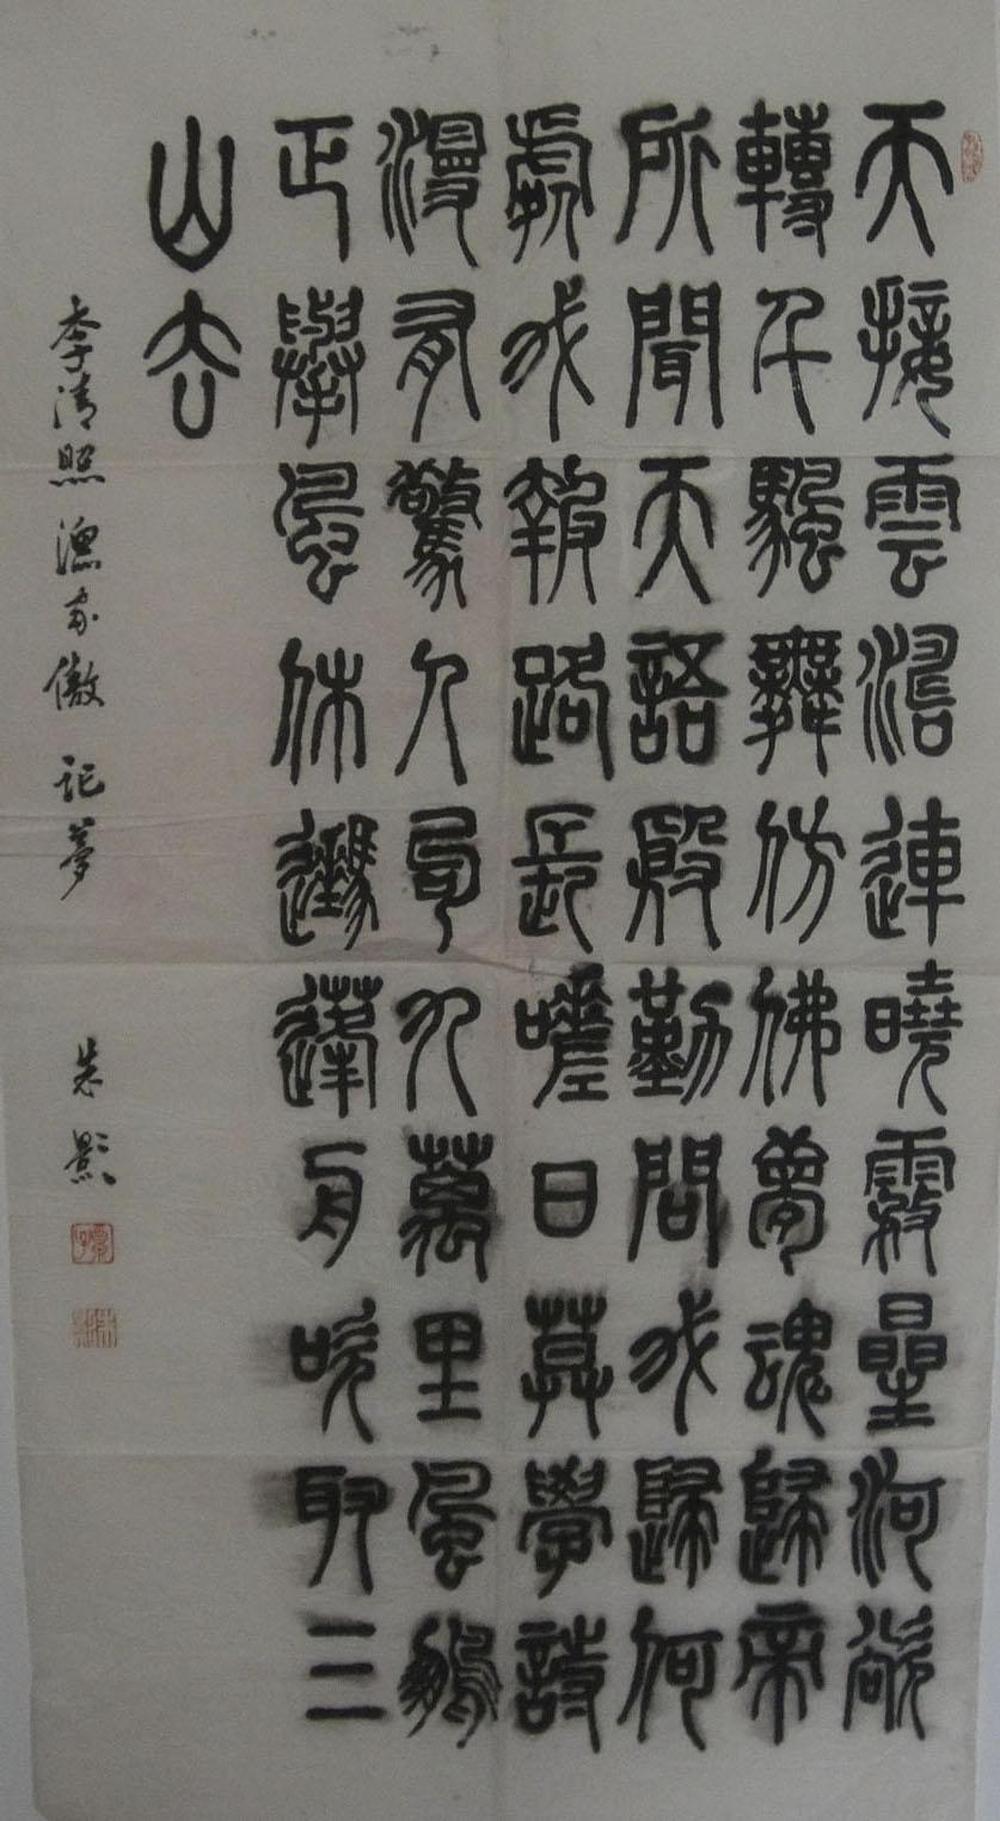 天接雲濤連曉霧星河欲
轉千颿舞仿佛夢魂歸帝
所聞天語殷勤問我歸何
處我報路長嗟日莫學詩
漫有驚人句九萬里風鵬
正舉風休住蓬舟吹取三
山去
李清照 漁家傲 記夢 朱影